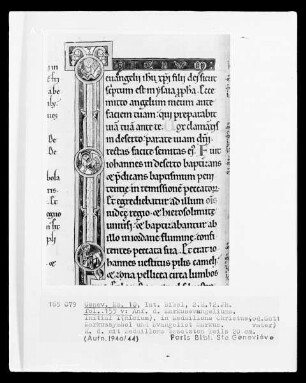 euangelii ihu xpi filii dei sicut
scriptum est in ysaia ꝓpha. Ecce
mitto angelum meum ante
faciem tuam: qui preparabit
uiā tuā ante te. Vox clamātis
in deserto parate uiam dn̄i:
rectas facite semitas ei. Fuit
iohannes in deserto baptizans
et p̄dicans baptismum peni
tentie in remissionē peccator.
Et egrediebatur ad illum ois
iudee regio et hierosolimite
uniuersi et baptizabantur ab
illo in iordane flumine confi
tentes peccata sua. Et erat io
hannes uestitus pilis cameli
et zona pellicea circa lumbos
165 079
Genev. Ms. 10, lat. Bibel, 2.H.12.Jh.
Fol. 153 v: Anf. d. Markusevangeliums.
Initial I(nitium), in Medaillons Christus(od.Gott
Markussymbol und Evangelist Markus. Vater)
H. d. mit Medaillons besetzten Teils 20 cm.
(Aufn.1940/44) Paris Bibl. Ste Geneviève